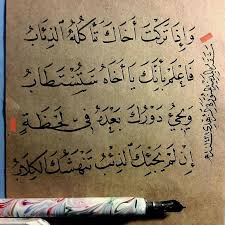 وَإِذَا تَرَكْتَ أَخَاكَ تَأْكُلُهُ الذِّئَابُ
فَاعْلَمْ بِأَنَّكَ يَا أَخَاهُ سَتُسْتَطَابُ
وَيَجِيءُ دَوْرُكَ بَعْدَهُ فِي لَحْظَةٍ
إِنْ لَمْ يَجِئْكَ الذِّئْبُ تَنْهَشُكَ الْكِلَابُ